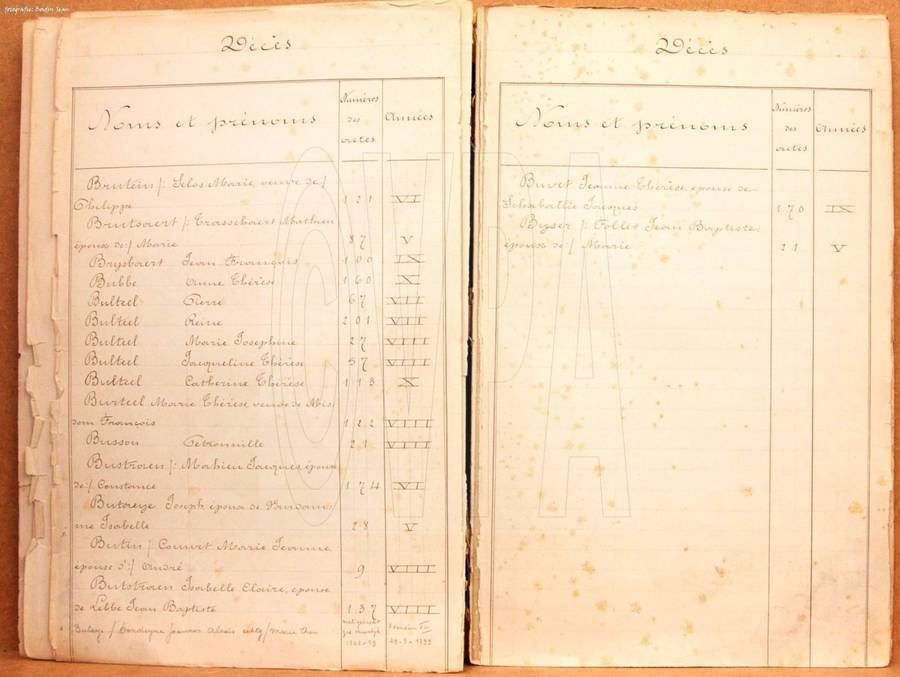 fotografie: Bonfin Jean
Décès
Noms et prénoms
Numéros
des
actes
Années
Brutein /: Selos Marie, veuve de:/
Philippe 121 VI
Brutsaert /: Trassebaert Mathieu
épouse de:/ Marie 87 V
Brysbaert Jean François 100 IX
Bubbe Anne Thérèse 160 X
Bulteel Pierre 67 VII
Bulteel Reine 201 VII
Bulteel Marie Josephine 27 VIII
Bulteel Jacqueline Thérèse 57 VIII
Bulteel Catherine Thérèse 113 X
Burteel Marie Thérèse, veuve de Mis
som François 122 VIII
Busson Petronille 21 VIII
Bustraen /: Mahieu Jacques, époux
de:/ Constance 174 VI
Butoreye Joseph, époux de
me Isabelle 28 V
Butin /: Couvret Marie Jeanne,
épouse d':/ André 9 VIII
Butstraen Isabelle Claire, épouse
de Lebbe Jean Baptiste 137 VIII
Décès
Noms et prénoms
Numéros
des
actes
Années
Buvet Jeanne Thérèse, épouse de
Jacques 170 IX
Byser /: Follet Jean Baptiste
épouse de:/ Marie 21 V
CVPA